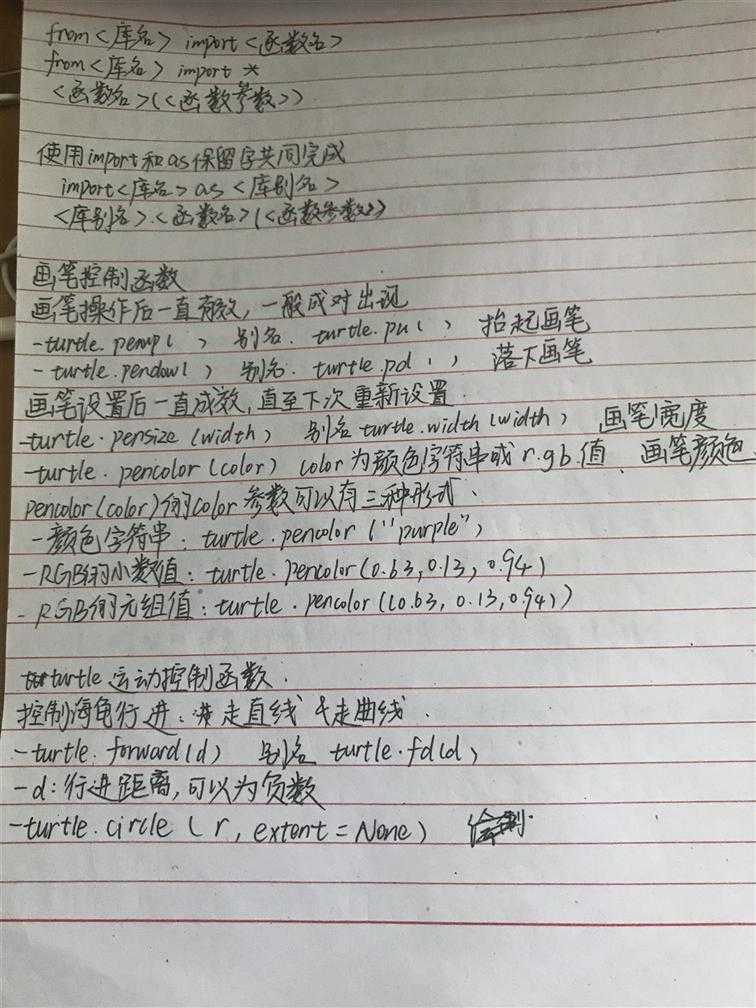 from<库名> import<函数名>
from<库名> import *
<函数名>(<函数参数>)
使用import和as保留字共同完成
import<库名> as <库别名>
<库别名>.<函数名>(<函数参数>)
画笔控制函数
画笔操作后一直有效,一般成对出现
-turtle.penup( ) 别名. turtle.pu( ) 抬起画笔
-turtle.pendown( ) 别名. turtle.pd( ) 落下画笔
画笔设置后一直成效,直至下次重新设置.
-turtle.pensize(width) 别名turtle.width(width) 画笔宽度
-turtle.pencolor(color) color为颜色字符串或r.g.b.值、画笔颜色
pencolor(color)的color参数可以有三种形式.
-颜色字符串:turtle.pencolor("purple")
-RGB的小数值:turtle.pencolor(0.63,0.13,0.94)
-RGB的元组值:turtle.pencolor((0.63,0.13,0.94))
turtle运动控制函数.
控制海龟行进:走直线 &走曲线.
-turtle.forward(d) 别名 turtle.fd(d)
-d:行进距离,可以为负数
-turtle.circle(r,extent=None)